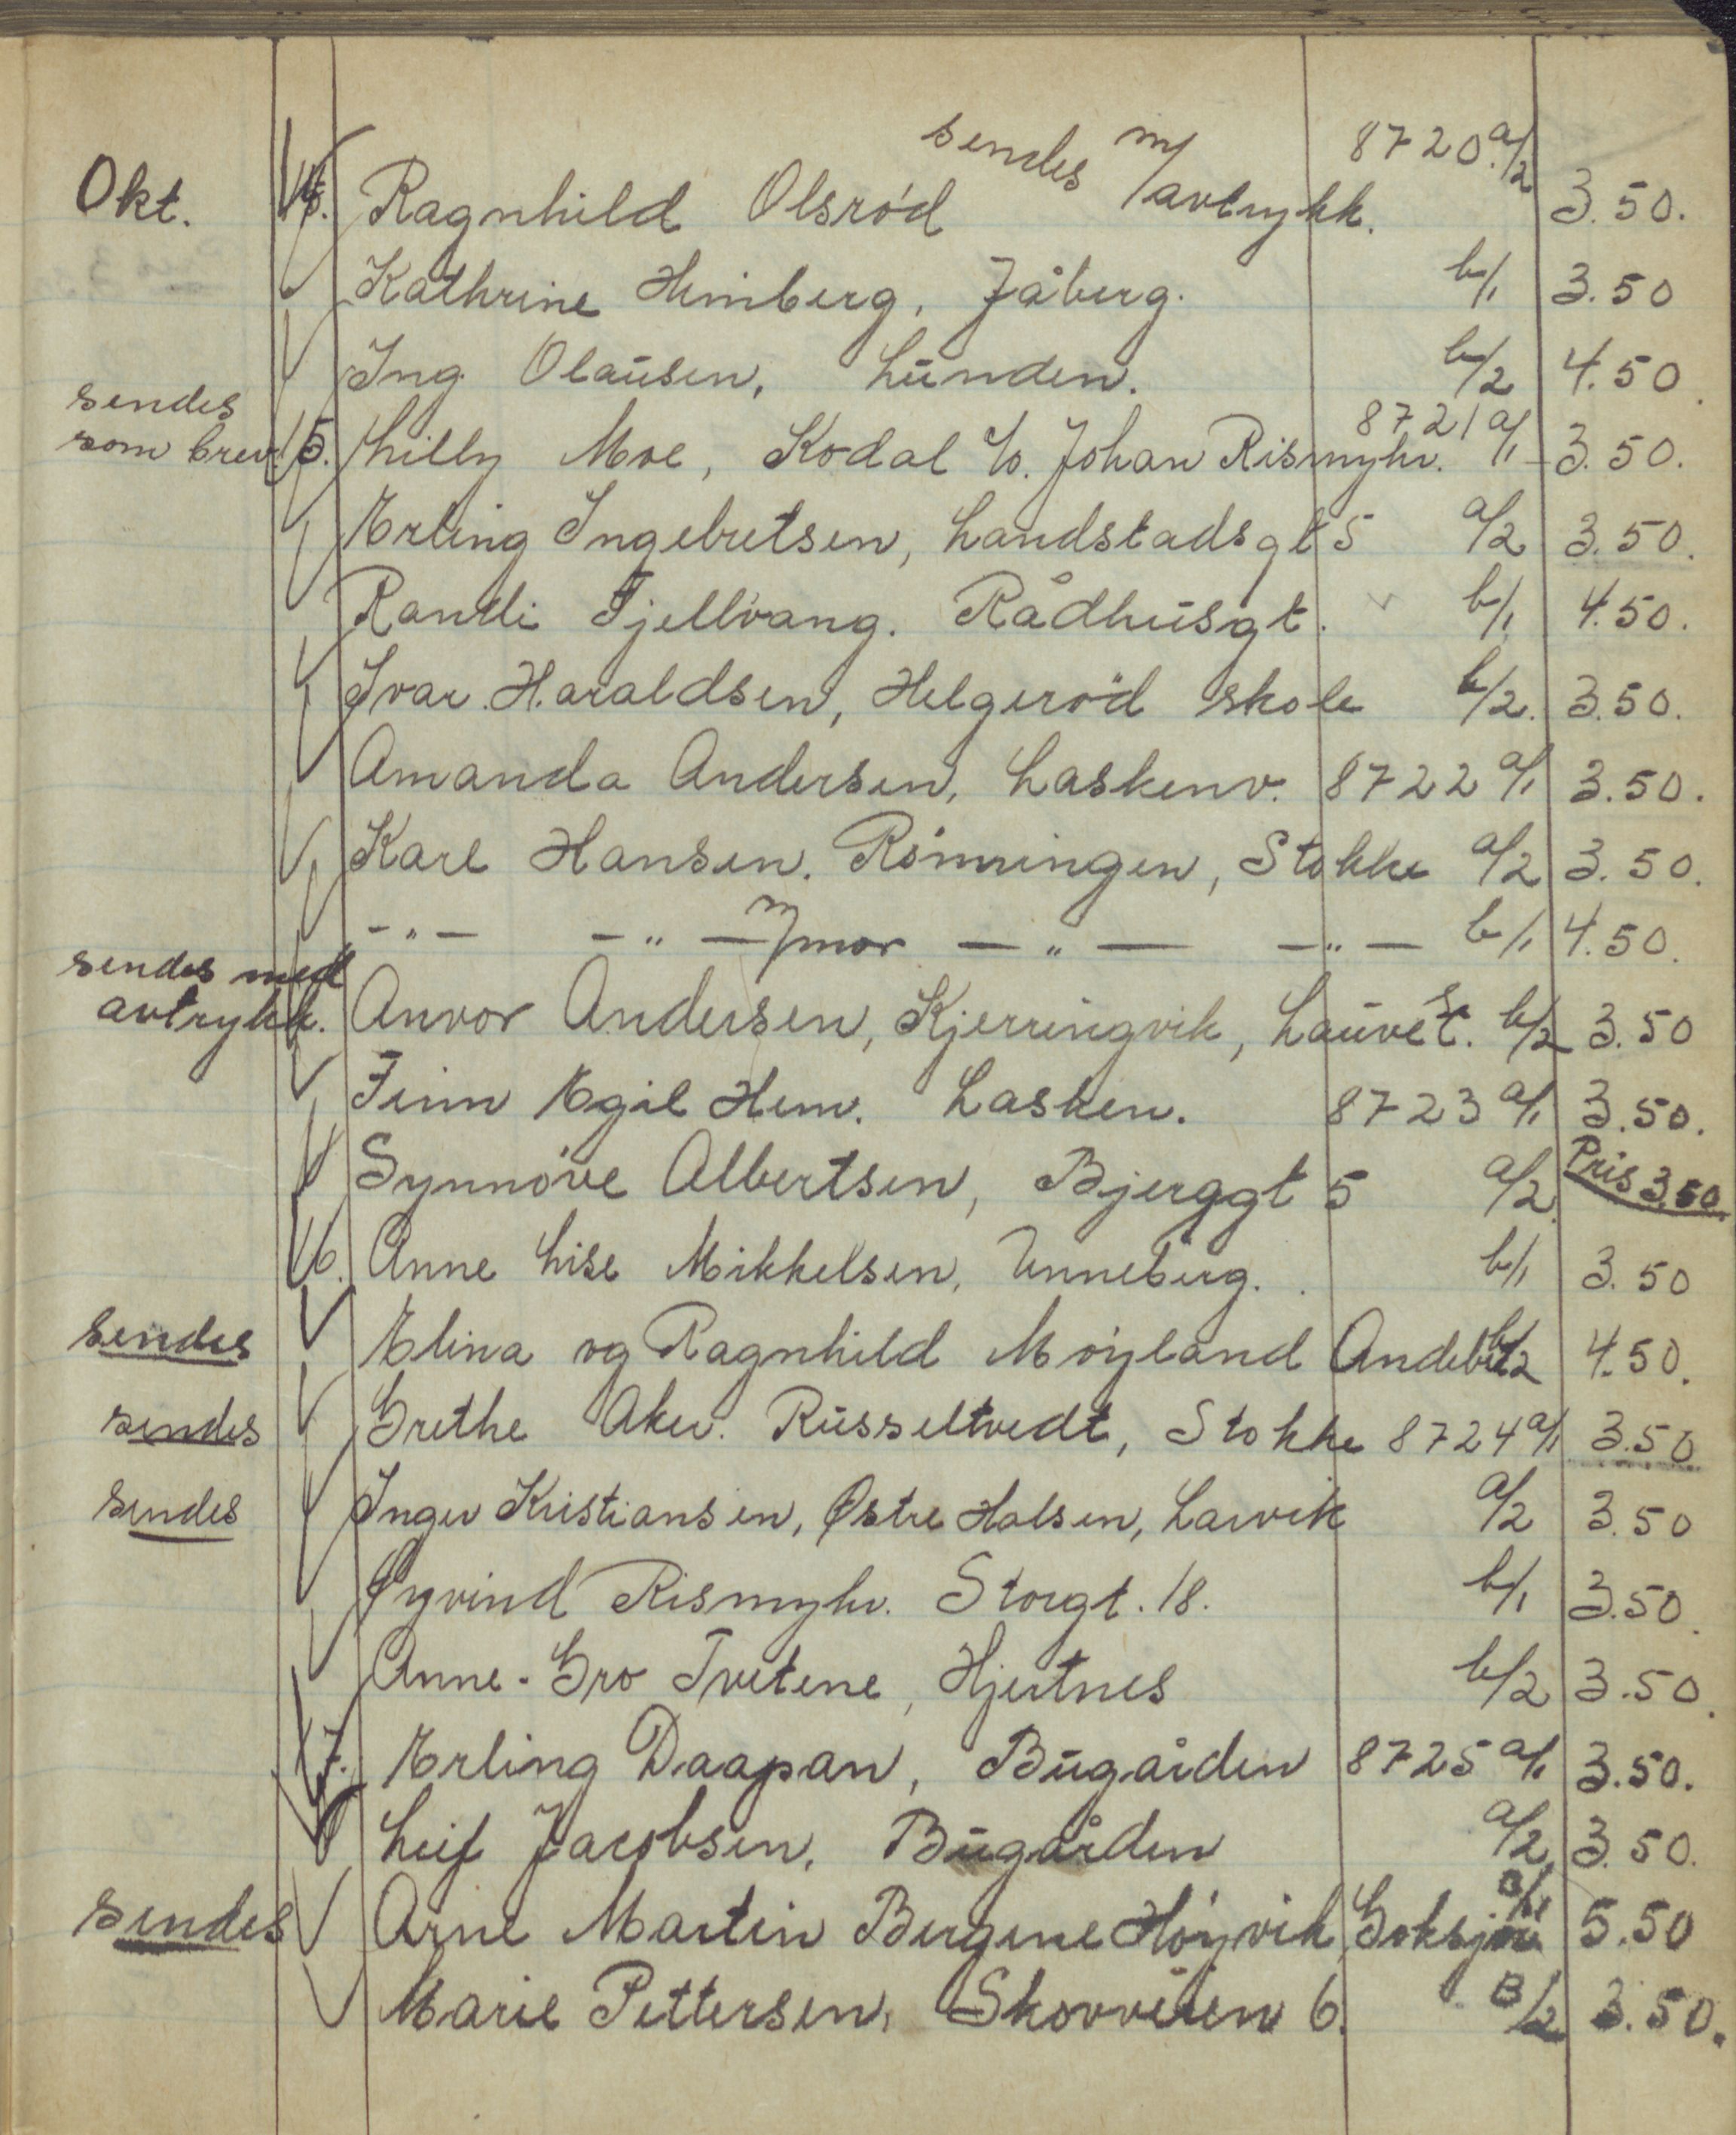 sendes m/ 8720 a/2
Okt. Ragnhild Olsród avtrykk. 3.50.
Kathrine Himberg, Jåberg. b/1 3.50
Ing. Olaŭsen, Lŭnden. b/2 4.50
sendes
som brev. 5. Lilly Moe, Kodal c/o. Johan Rismyhr. 8721 a/1 3.50.
Erling Ingebretsen, Landstadsgt 5 a/2 3.50.
Randi Fjellvang. Rådhŭsgt. b/1 4.50.
Ivar Haraldsen, Helgeród skole b/2. 3.50.
Amanda Andersen, Laskenv. 8722 a/1 3.50.
Karl Hansen. Rónningen, Stokke a/2 3.50.
-"- -"- m/mor -"- -"- b/1 4.50.
sendes med
avtrykk. Anvor Andersen, Kjerringvik, Laŭve st. b/2 3.50
Finn Egil Hem. Lasken. 8723 a/1 3.50.
Synnóve Albertsen, Bjerggt 5 a/2. Pris 3.50.
6. Anne Lise Mikkelsen, Unneberg. b/1 3.50
sendes Elina og Ragnhild Móyland Andebu b/2 4.50.
sendes Grethe Aker. Rŭsseltvedt, Stokke 8724 a/1 3.50
sendes Inger Kristiansen, Østre Halsen, Larvik a/2 3.50
Øyvind Rismyhr. Storgt. 18. b/1 3.50.
Anne-Gro Tvetene, Hjertnes b/2 3.50.
7. Erling Daapan, Bŭgården 8725 a/1 3.50.
Leif Jacobsen, Bŭgården a/2 3.50.
sendes Arne Martin Bergene Hóyvik, Goksjó B/1 5.50
Marie Pettersen, Skovveien 6. B/2 3.50.